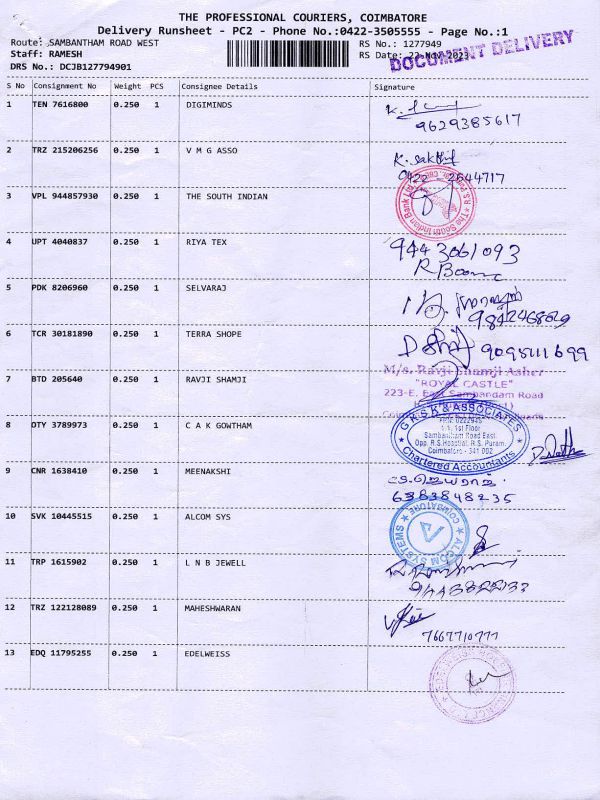 THE PROFESSIONAL COURIERS, COIMBATORE
Delivery Runsheet - PC2 - Phone No.:0422-3505555 - Page No.:1
Route: SAMBANTHAM ROAD WEST
RS No.: 1277949
Staff: RAMESH
RS Date: 22-Nov-2023
DOCUMENT DELIVERY
DRS No.: DCJB127794901
S No Consignment No Weight PCS Consignee Details Signature
1 TEN 7616800 0.250 1 DIGIMINDS
9629385617
2 TRZ 215206256 0.250 1 V M G ASSO K. Sakthi
0422 - 2544717
3 VPL 944857930 0.250 1 THE SOUTH INDIAN
The South Indian Bank Ltd
4 UPT 4040837 0.250 1 RIYA TEX 9443061093
5 PDK 8206960 0.250 1 SELVARAJ
9842468029
6 TCR 30181890 0.250 1 TERRA SHOPE
9095111699
7 BTD 205640 0.250 1 RAVJI SHAMJI M/s. Ravji Shamji Asher
"ROYAL CASTLE"
223-E, East Sambandam Road
8 OTY 3789973 0.250 1 C A K GOWTHAM
G K S K & ASSOCIATES
1st Floor
Sambantham Road East,
Opp. R.S. Hospital, R.S. Puram,
Coimbatore - 641 002
Chartered Accountants
9 CNR 1638410 0.250 1 MEENAKSHI
6383848235
10 SVK 10445515 0.250 1 ALCOM SYS
ALCOM SYSTEMS
COIMBATORE
11 TRP 1615902 0.250 1 L N B JEWELL
12 TRZ 122128089 0.250 1 MAHESHWARAN
7667710777
13 EDQ 11795255 0.250 1 EDELWEISS